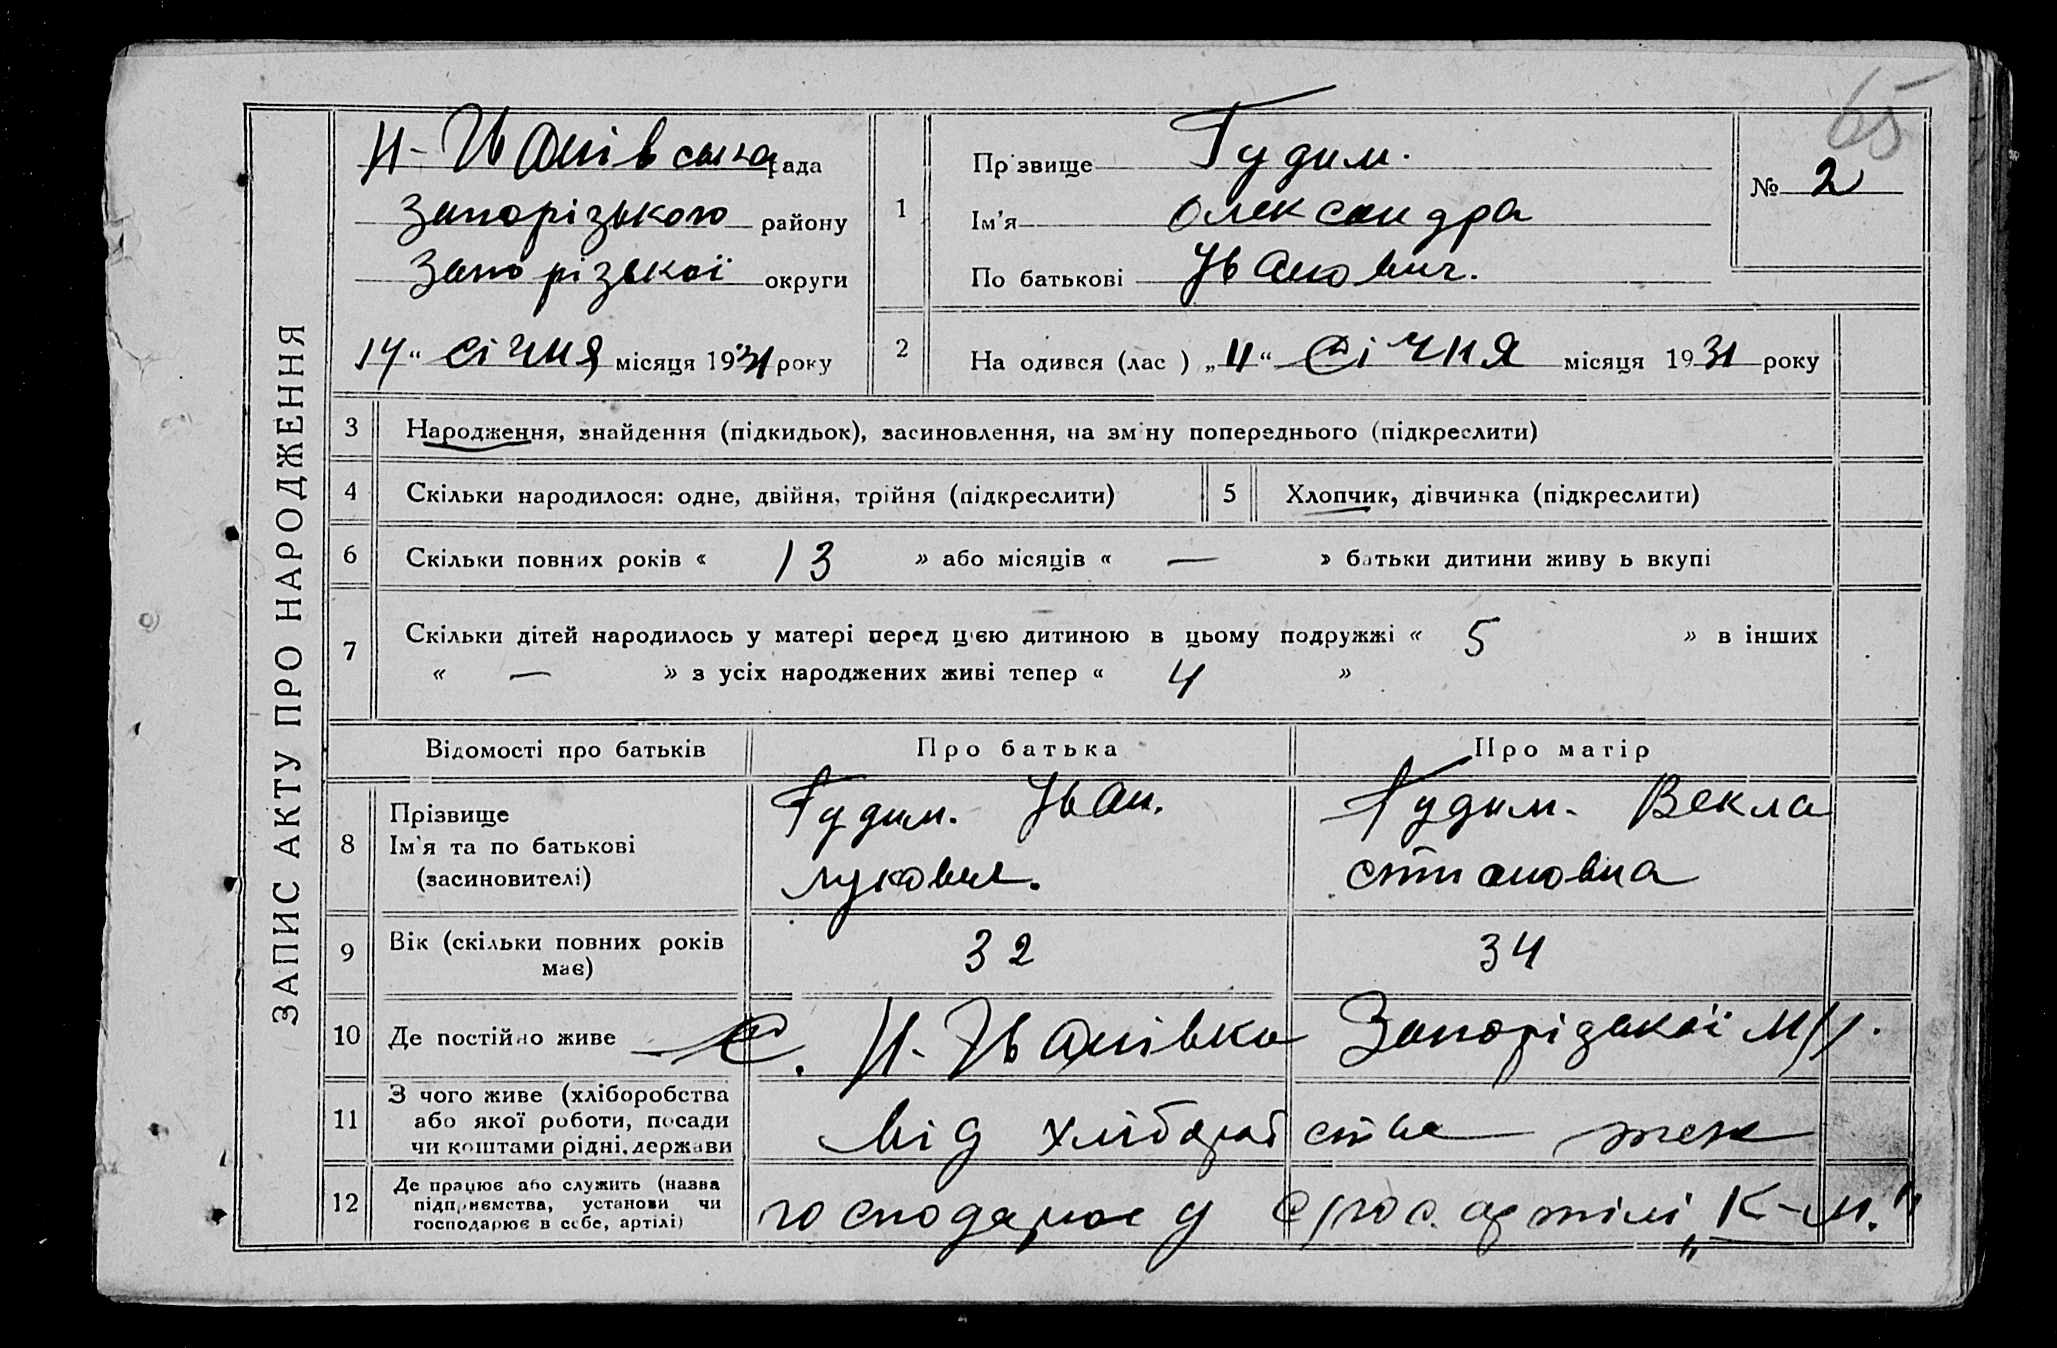 65
ЗАПИС АКТУ ПРО НАРОДЖЕННЯ
Н-Іванівська рада
Запорізького району
Запорізької округи
14 " січня місяця 1931 року
1
Прізвище Гудим.
Ім'я Олександра
По батькові Іванович.
№ 2
2
На одився (лас ) „ 11 “ Січня місяця 1931 року
3 Народження, знайдення (підкидьок), засиновлення, на зміну попереднього (підкреслити)
4 Скільки народилося: одне, двійня, трійня (підкреслити)
5 Хлопчик, дівчинка (підкреслити)
6 Скільки повних років « 13 » або місяців « — » батьки дитини живу ь вкупі
7 Скільки дітей народилось у матері перед цією дитиною в цьому подружжі « 5 » в інших
« — » з усіх народжених живі тепер « 4 »
Відомості про батьків Про батька Про матір
8 Прізвище
Ім'я та по батькові
(засиновителі)
Гудим. Іван.
Лукович.
Гудим. Векла
Степановна
9 Вік (скільки повних років
має)
32 34
10 Де постійно живе С. Н-Іванівка Запорізької м/р.
11 З чого живе (хліборобства
або якої роботи, посади
чи коштами рідні, держави
від хлібороб ства теж
12 Де працює або служить (назва
підприємства, установи чи
господарює в себе, артілі)
господарює у с/гос. артілі „К-М."